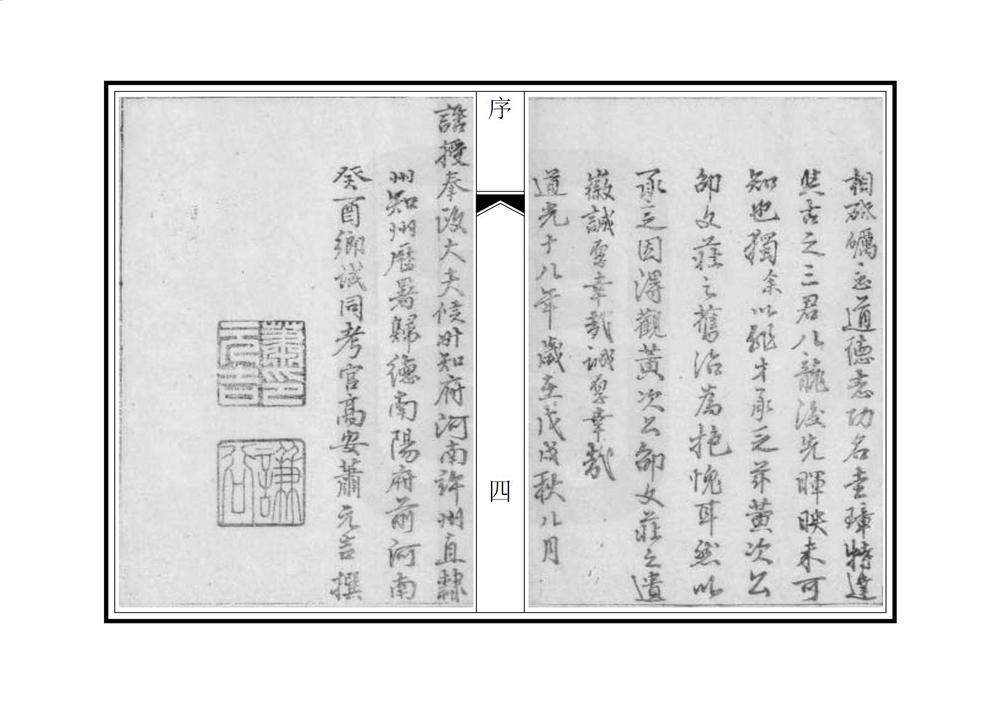 相砥礪之道德意功名圭璋特達
與古之三君八龍後先暉映未可
知也獨余以駑才承乏茲黃次公
邵文莊之舊治為抱愧耳然以
承乏因得觀黃次公邵文莊之遺
徽誠厚幸哉誠厚幸哉
道光十八年歲在戊戌秋八月
序
四
誥授奉政大夫候升知府河南許州直隸
州知州歷署歸德南陽府前河南
癸酉鄉試同考官高安蕭元吉撰
蕭元吉印
謙谷